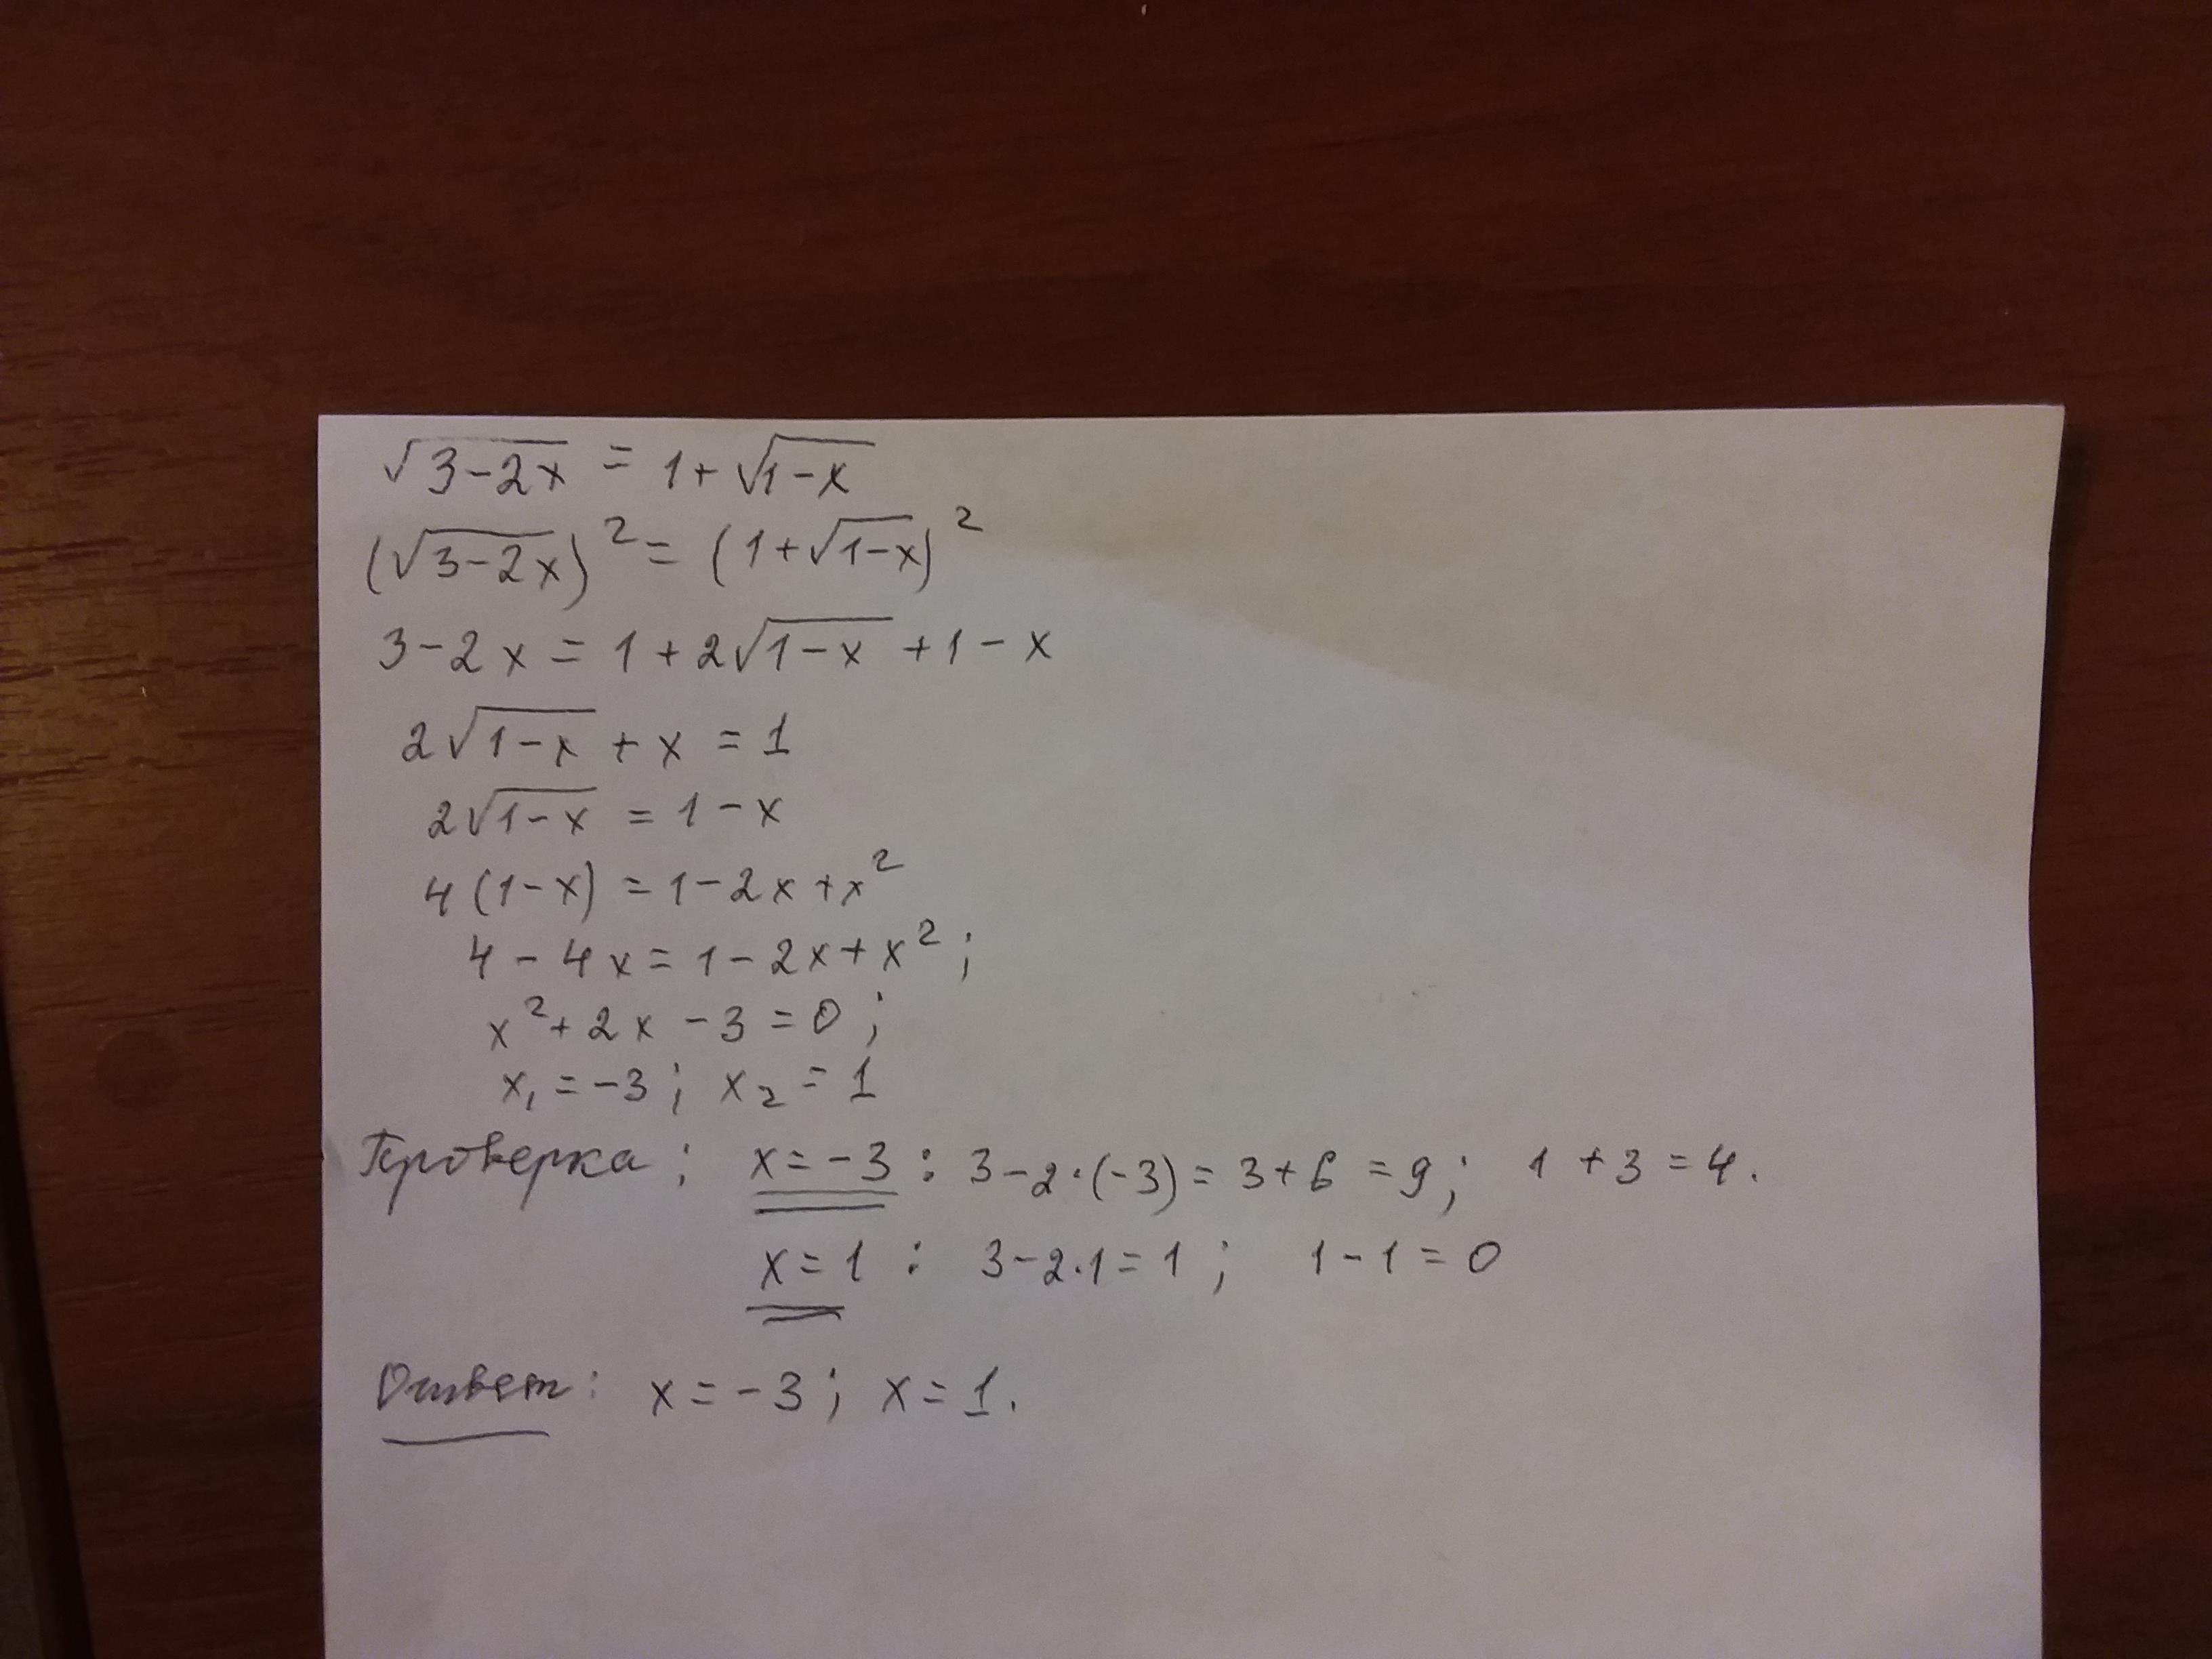 √3-2x = 1+√1-x
(√3-2x)² = (1+√1-x)²
3-2x = 1+2√1-x +1-x
2√1-x + x = 1
2√1-x = 1-x
4(1-x) = 1-2x+x²
4-4x = 1-2x+x²;
x²+2x-3=0;
x₁=-3; x₂=1
Проверка: x=-3: 3-2·(-3)=3+6=9; 1+3=4.
x=1: 3-2·1=1; 1-1=0
Ответ: x=-3; x=1.